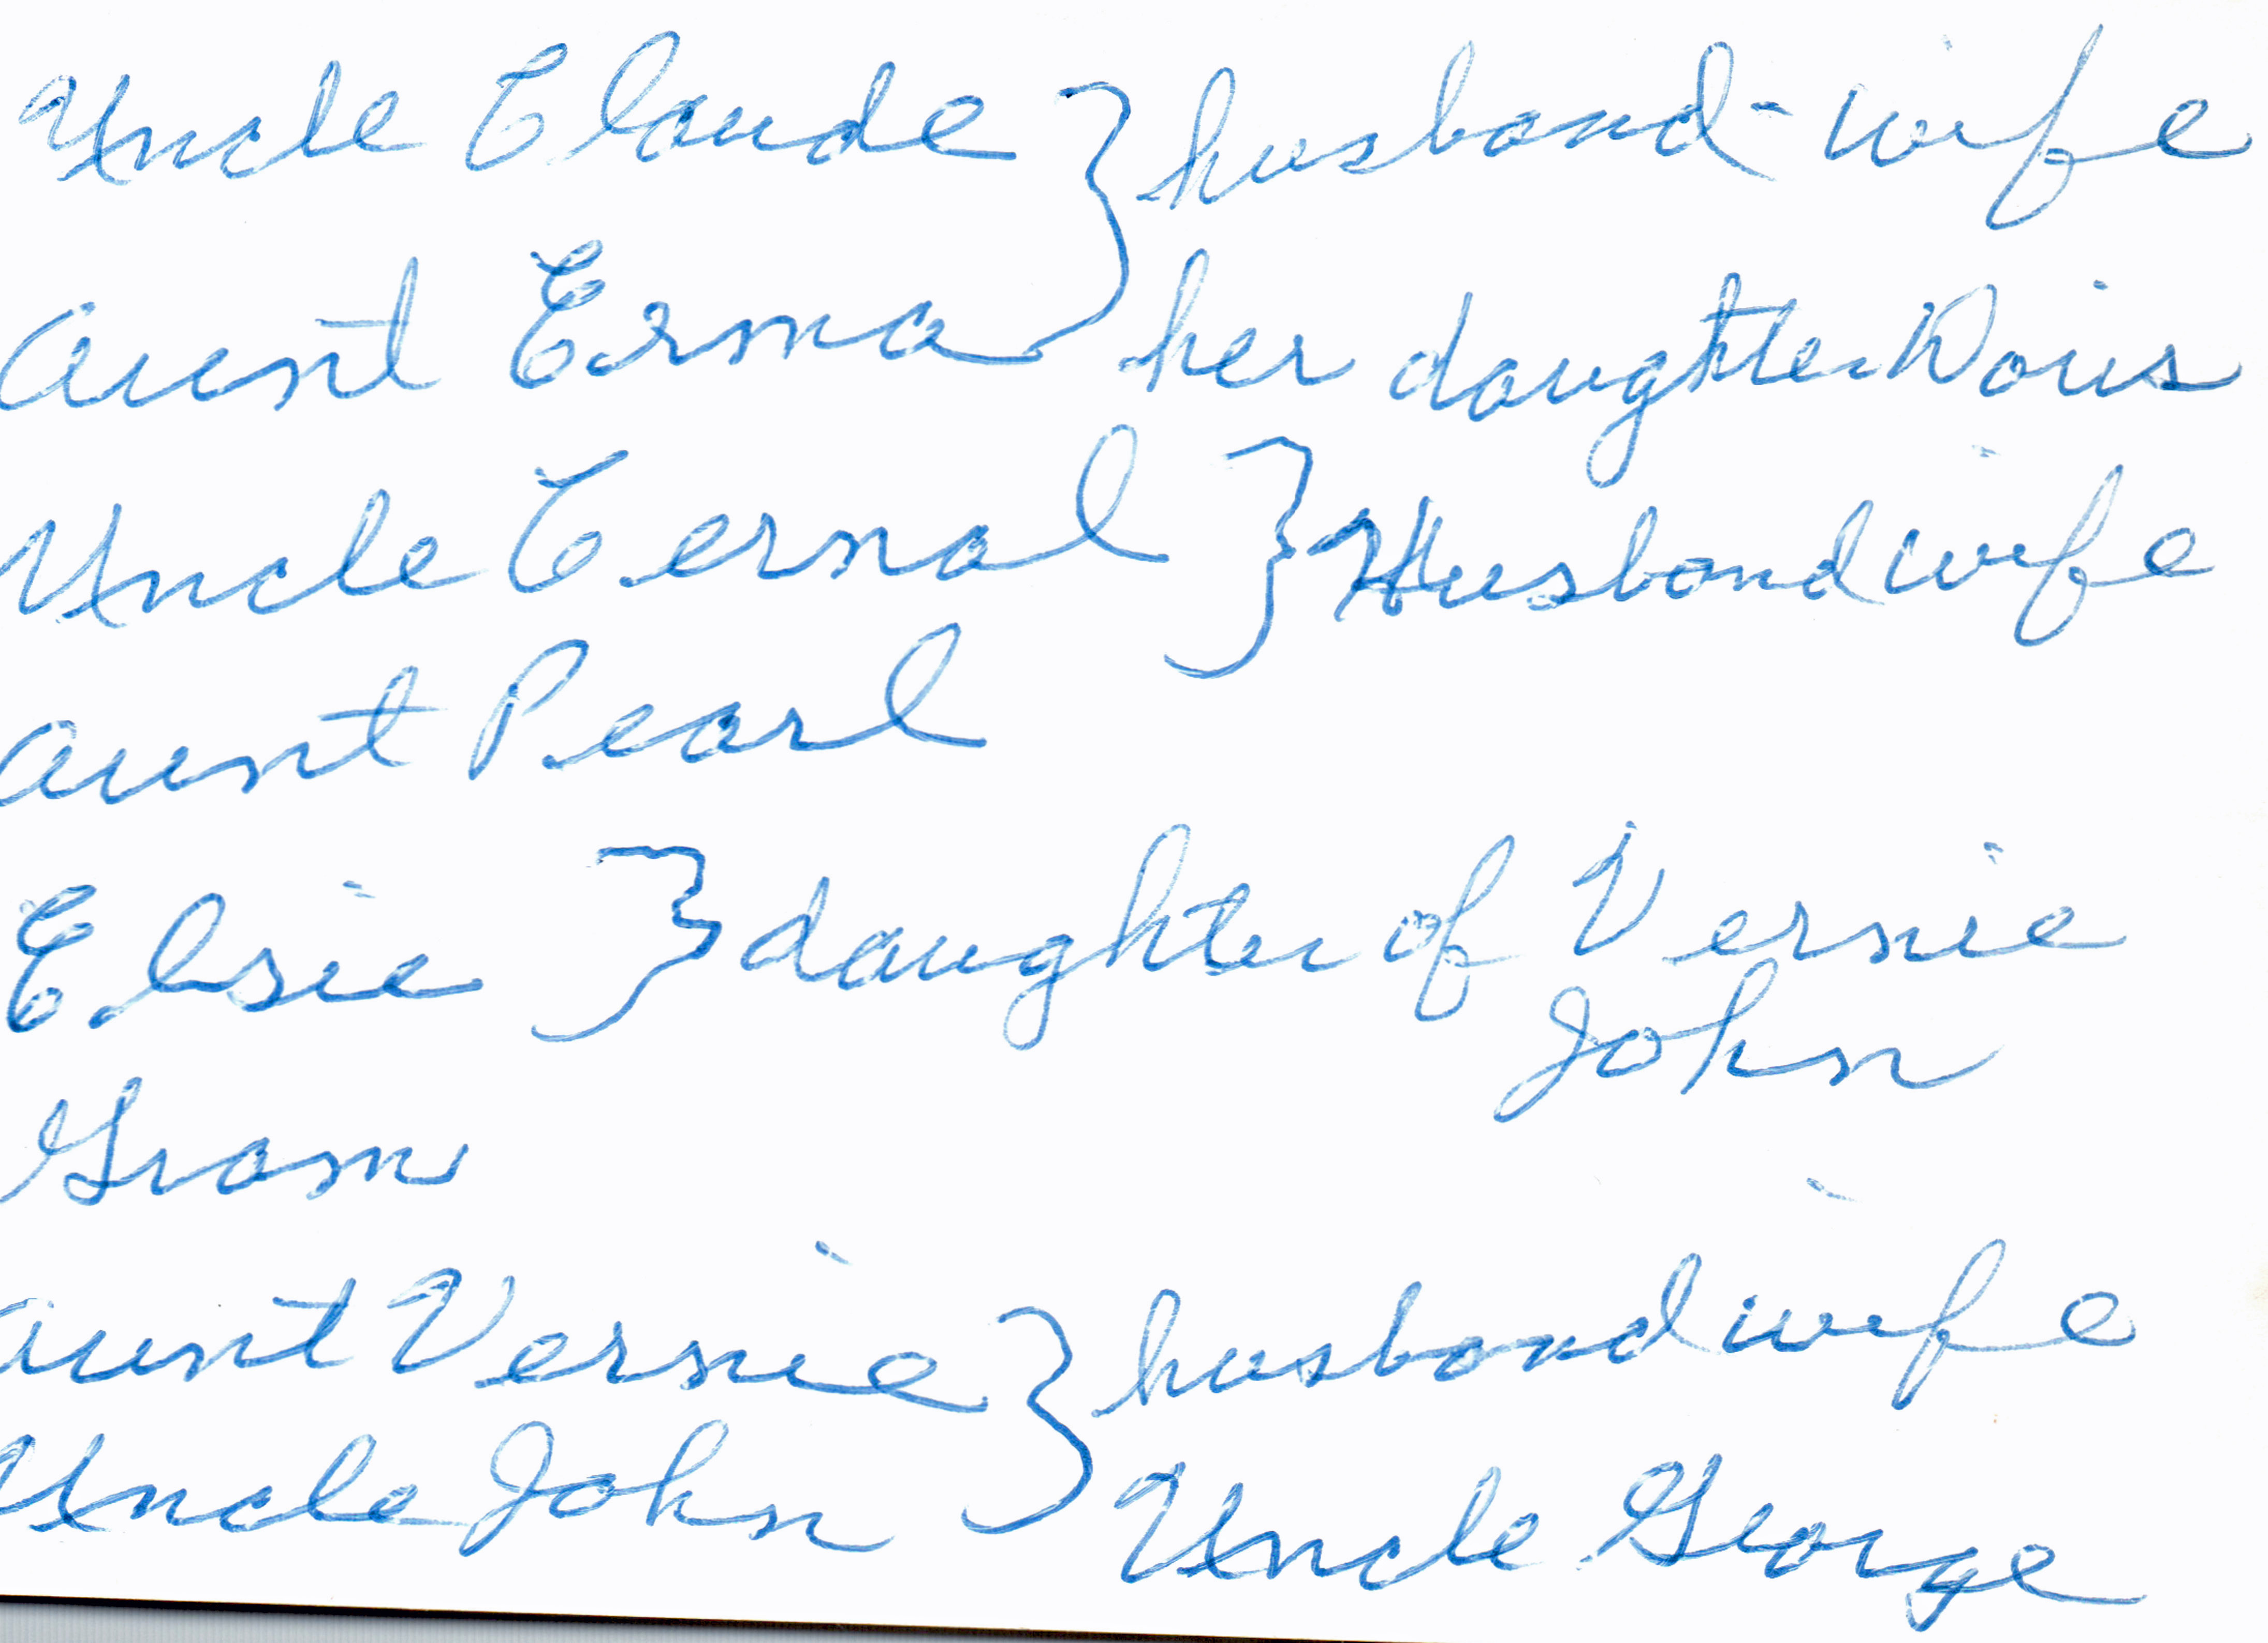 Uncle Claude } husband - wife
Aunt Erma her daughter Doris
Uncle Cernal } Husband wife
Aunt Pearl
Elsie } daughter of Vernie
John
Gram
Aunt Vernie } husband wife
Uncle John Uncle George